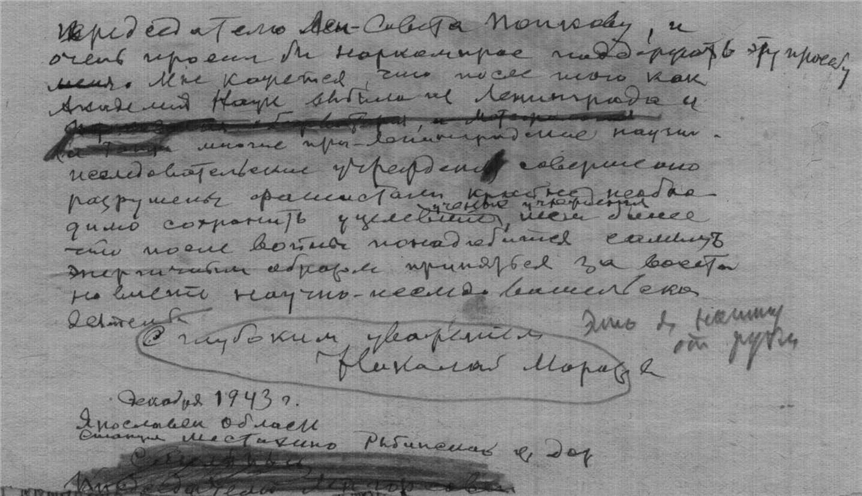 председателю Лен-Совета Попкову, и
очень просил бы наркомпрос поддержать эту просьбу
меня. Мне кажется, что после того как
Академия Наук выбыла из Ленинграда и
многие при-Ленинградские научн-
исследовательские учреждения совершенно
разрушены фашистами крайне необхо-
димо сохранить уцелевшие, тем более
ученые учреждения
что после войны понадобится самым
энергичным образом приняться за восста
новление научно-исследовательской
деятель
С глубоким уважением
Николай Морозов
Это я напишу
от руки
Декабря 1943 г.
Ярославск области
станция Шестихино Рыбинской ж дор